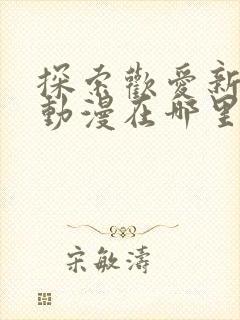 探索歡愛新
動漫在哪里
宋敏濤